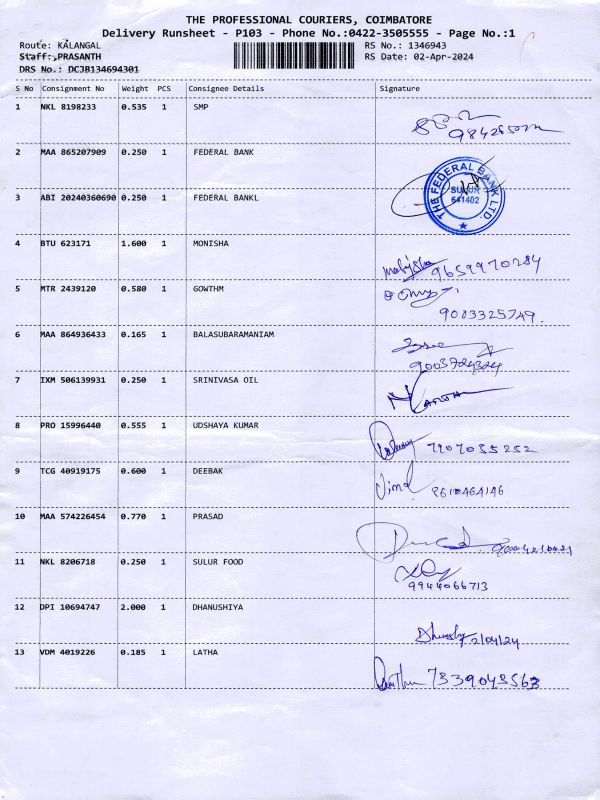 THE PROFESSIONAL COURIERS, COIMBATORE
Delivery Runsheet - P103 - Phone No.:0422-3505555 - Page No.:1
Route: KALANGAL RS No.: 1346943
Staff:,PRASANTH RS Date: 02-Apr-2024
DRS No.: DCJB134694301
S No Consignment No Weight PCS Consignee Details Signature
1 NKL 8198233 0.535 1 SMP
2 MAA 865207909 0.250 1 FEDERAL BANK
THE FEDERAL BANK LTD.
SULUR
641402
3 ABI 20240360690 0.250 1 FEDERAL BANKL
4 BTU 623171 1.600 1 MONISHA
9659970284
5 MTR 2439120 0.580 1 GOWTHM
9003325749.
6 MAA 864936433 0.165 1 BALASUBARAMANIAM
9003724324
7 IXM 506139931 0.250 1 SRINIVASA OIL
8 PRO 15996440 0.555 1 UDSHAYA KUMAR
7907055252
9 TCG 40919175 0.600 1 DEEBAK
Vimal 8610464146
10 MAA 574226454 0.770 1 PRASAD
11 NKL 8206718 0.250 1 SULUR FOOD
9944066713
12 DPI 10694747 2.000 1 DHANUSHIYA
2/04/24
13 VDM 4019226 0.185 1 LATHA
7339043563